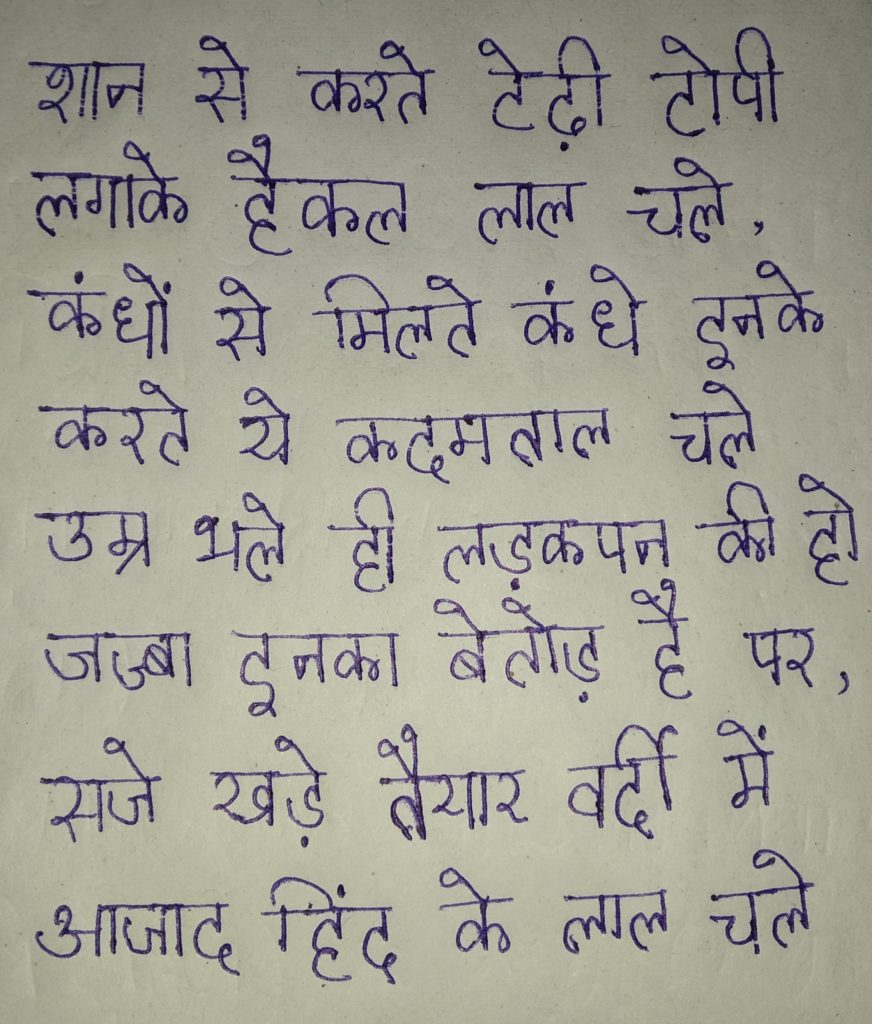 शान से करते टेढ़ी टोपी
लगाके हैकल लाल चले,
कंधों से मिलते कंधे इनके
करते ये कदमताल चले
उम्र भले ही लड़कपन की हो
जज्बा इनका बेतोड़ है पर,
सजे खड़े तैयार वर्दी में
आजाद हिंद के लाल चले